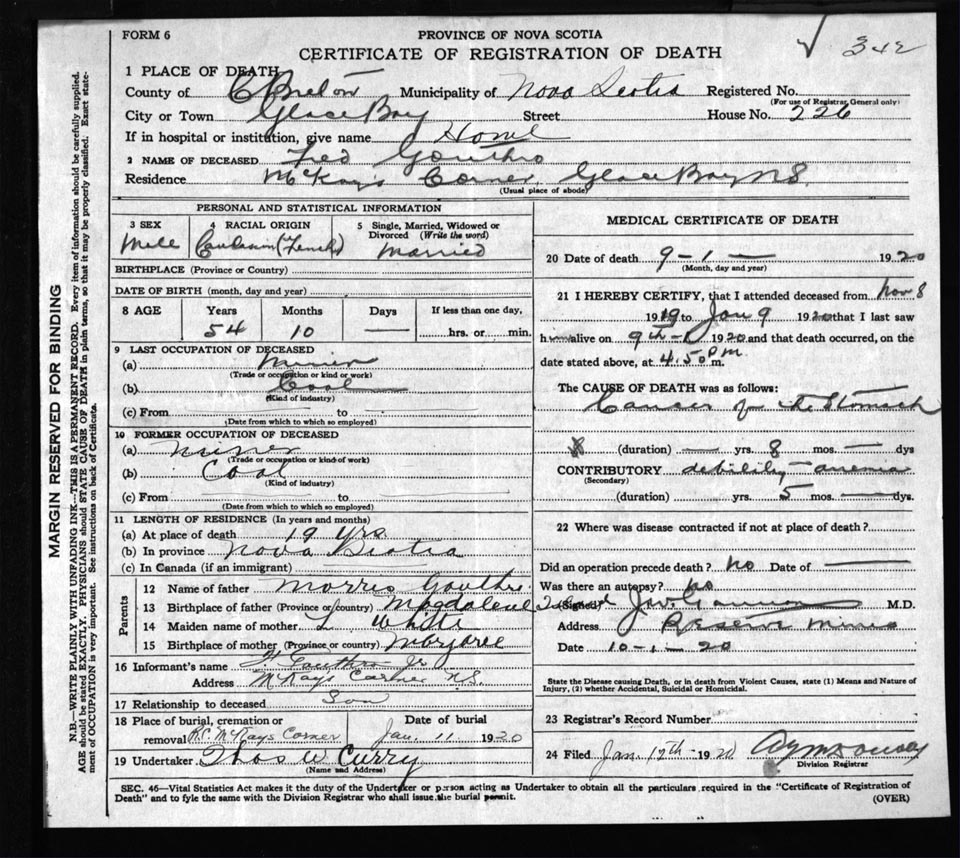 FORM 6
PROVINCE OF NOVA SCOTIA
CERTIFICATE OF REGISTRATION OF DEATH
342
1 PLACE OF DEATH
County of C Breton Municipality of Nova Scotia Registered No.
(For use of Registrar General only)
City or Town Glace Bay Street House No. 226
If in hospital or institution, give name Home
2 NAME OF DECEASED Fred Gouthro
Residence McKay's Corner, Glace Bay N S.
(Usual place of abode)
PERSONAL AND STATISTICAL INFORMATION
3 SEX 4 RACIAL ORIGIN 5 Single, Married, Widowed or Divorced (Write the word)
Male (French) Married
BIRTHPLACE (Province or Country)
DATE OF BIRTH (month, day and year)
8 AGE Years Months Days If less than one day,
54 10 — hrs. or min.
9 LAST OCCUPATION OF DECEASED
(a) Miner
(Trade or occupation or kind or work)
(b) Coal
(Kind of industry)
(c) From to
(Date from which to which so employed)
10 FORMER OCCUPATION OF DECEASED
(a) Miner
(Trade or occupation or kind of work)
(b) Coal
(Kind of industry)
(c) From to
(Date from which to which so employed)
11 LENGTH OF RESIDENCE (In years and months)
(a) At place of death 19 yrs
(b) In province Nova Scotia
(c) In Canada (if an immigrant)
Parents
12 Name of father Morris Gouthro
13 Birthplace of father (Province or country) Magdalene Island
14 Maiden name of mother L. White
15 Birthplace of mother (Province or country) Margaree
16 Informant's name Gouthro Jr
Address McKays Corner N.S.
17 Relationship to deceased Son
18 Place of burial, cremation or removal R.C. McKays Corner Date of burial Jan. 11 1920
19 Undertaker Thos W Curry
(Name and Address)
MEDICAL CERTIFICATE OF DEATH
20 Date of death 9 - 1 — 1920
(Month, day and year)
21 I HEREBY CERTIFY, that I attended deceased from Nov 8
1919 to Jan 9 1920 that I last saw
h alive on 9th - 1 1920 and that death occurred, on the
date stated above, at 4.50 pm m.
The CAUSE OF DEATH was as follows:
Cancer of the Stomach
(duration) — yrs. 8 mos. — dys
CONTRIBUTORY debility - anemia
(Secondary)
(duration) yrs. 5 mos. — dys.
22 Where was disease contracted if not at place of death?
Did an operation precede death? No Date of —
Was there an autopsy? No
(Signed) M.D.
Address Reserve Mines
Date 10 - 1 - 20
State the Disease causing Death, or in death from Violent Causes, state (1) Means and Nature of Injury, (2) whether Accidental, Suicidal or Homicidal.
23 Registrar's Record Number
24 Filed Jan. 12th - 1920
Division Registrar
SEC. 46—Vital Statistics Act makes it the duty of the Undertaker or person acting as Undertaker to obtain all the particulars required in the "Certificate of Registration of
Death" and to fyle the same with the Division Registrar who shall issue the burial permit. (OVER)
MARGIN RESERVED FOR BINDING
N.B.—WRITE PLAINLY WITH UNFADING INK—THIS IS A PERMANENT RECORD. Every item of information should be carefully supplied.
AGE should be stated EXACTLY. PHYSICIANS should STATE CAUSE OF DEATH in plain terms, so that it may be properly classified. Exact state-
ment of OCCUPATION is very important. See instructions on back of Certificate.